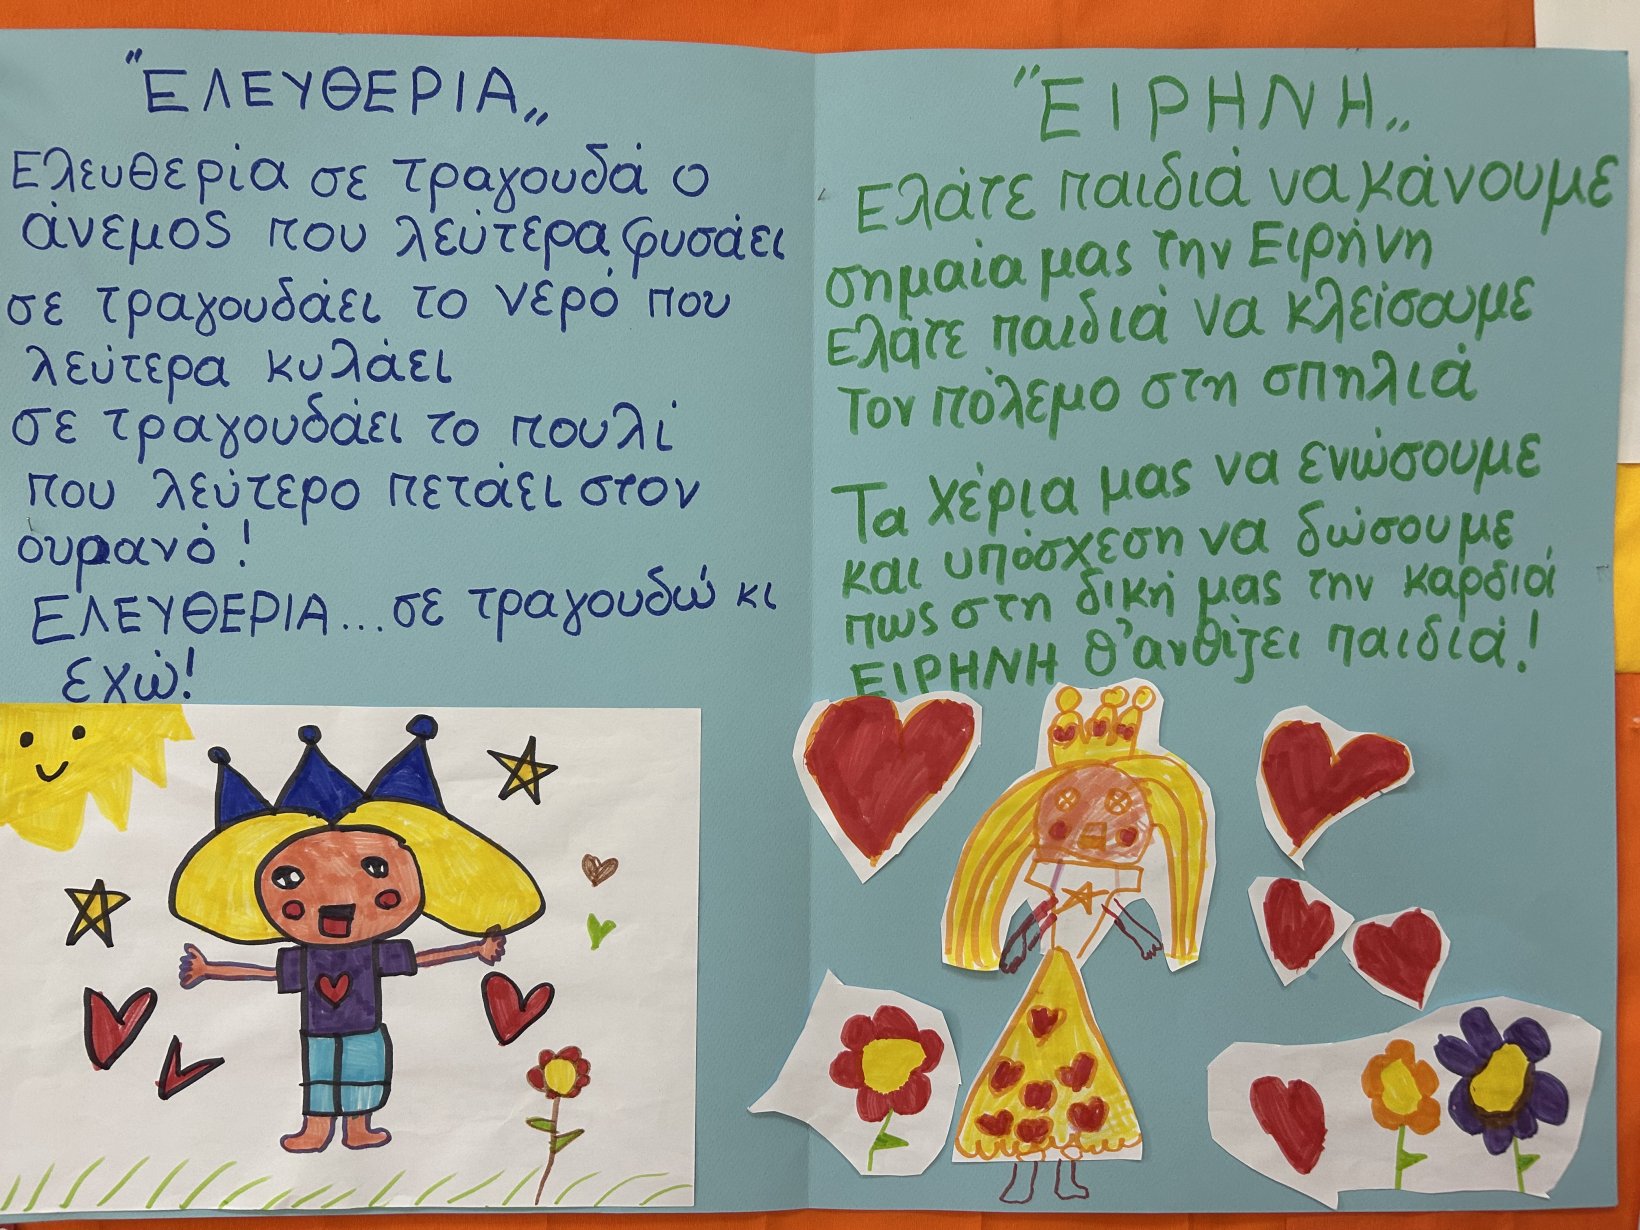 "ΕΛΕΥΘΕΡΙΑ„
Ελευθερία σε τραγουδά ο
άνεμος που λεύτερα φυσάει
σε τραγουδάει το νερό που
λεύτερα κυλάει
σε τραγουδάει το πουλί
που λεύτερο πετάει στον
ουρανό!
ΕΛΕΥΘΕΡΙΑ... σε τραγουδώ κι
εχώ!
"ΕΙΡΗΝΗ„
Ελάτε παιδιά να κάνουμε
σημαία μας την Ειρήνη
Ελάτε παιδιά να κλείσουμε
τον πόλεμο στη σπηλιά
Τα χέρια μας να ενώσουμε
και υπόσχεση να δώσουμε
πως στη δική μας την καρδιά
ΕΙΡΗΝΗ θ'ανθίζει παιδιά!